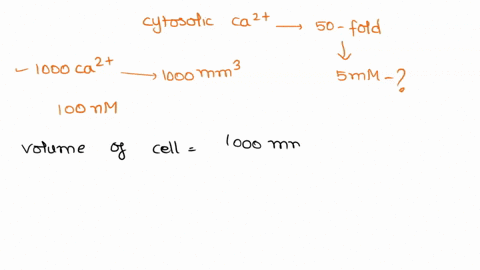 cytosolic ca²⁺ → 50-fold
↓
- 1000 ca²⁺ → 1000 mm³
5mM - ?
100 nM
volume of cell = 1000 mn